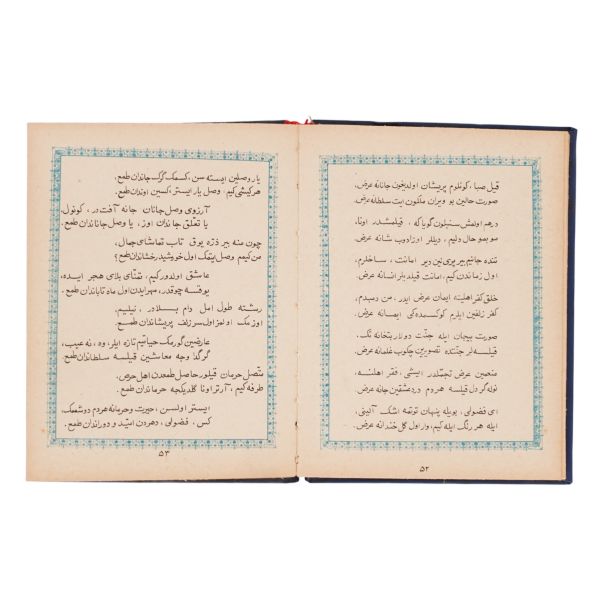 قیل صبا، کونلوم پریشان اولدیغون جانانه عرض،
صورت حالین بو ویران ملکون ایت سلطانه عرض.
درهم اولمش سنبلون گویا که، قیلمشدر اونا،
مو بمو حال دلیم، دیللر اوزادوب شانه عرض.
تنده جانیم بیر پری نین دیر امانت، ساخلرم،
اول زماندن کیم، امانت قیلدیلر انسانه عرض.
خلق کفر اهلینه ایمان عرض ایدر، من وسیدم،
کفر زلفین ایلرم کوکسمده کی ایمانه عرض.
صورت بیجان ایله جنت دولار بتخانه تک،
قیلسه لر جنتده تصویرین چکوب غلمانه عرض.
منعمین عرض تجملدر ایشی، فقر اهلینه،
نوله گر دل قیلسه هر دم درد عشقین جانه عرض.
ای فضولی، بویله پنهان توتمه اشک آلینی،
ایله هر رنگ ایله کیم، وار اول گل خندانه عرض.
۵۲
یار وصلین ایسته سن، کسمک گرک جاندان طمع.
هر کیشی کیم، وصل یار ایستر، کسین اوندان طمع.
آرزوی وصل جانان جانه آفت در، کونول،
یا تعلق جاندان اوز، یا وصل جاناندان طمع.
چون سنه بیر ذره یوق تاب تماشای جمال،
من کیمم وصل ایتمک اول خورشید رخشاندان طمع؟
عاشق اولدور کیم، تمنای بلای هجر ایده،
یوقسه چوقدر، مهر ایدن اول ماه تاباندان طمع.
رشته طول امل دام بلادر، نیلییم،
اوزمک اولمز اول سر زلف پریشاندان طمع.
عارضین گورمک حیاتیم تازه ایلر، وه، نه عیب،
گر گدا وجه معاشین قیلسه سلطاندان طمع.
متصل حرمان قیلور حاصل طمعدن اهل حرص،
طرفه کیم، آرتر اونا گلدیکجه حرماندان طمع.
ایستر اولسن، حیرت و حرمانه هردم دوشمک،
کس، فضولی، دهردن امید و دوراندان طمع.
۵۳